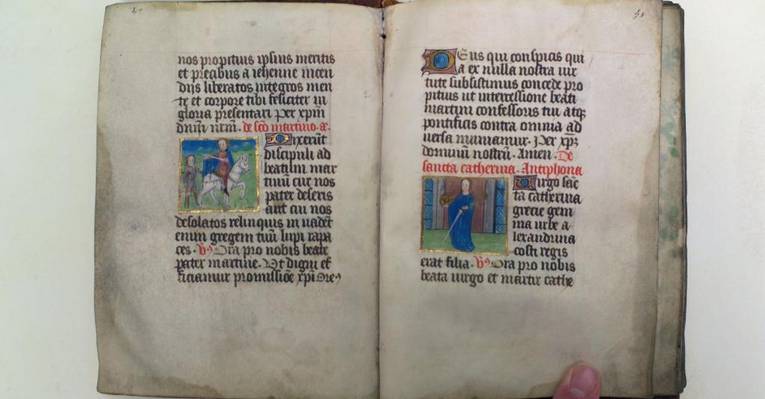 nos propitius ipsius meritis
et precibus a iehenne incen
diis liberatos integros men
te et corpore tibi feliciter in
gloria presentari per xpm
dnm nrm. de sco martino. a.
Dixerunt
discipuli ad
beatum mar
tinum cur nos
pater deseris
aut cui nos
desolatos relinquis inuadet
enim gregem tuum lupi rapa
ces. Vs Ora pro nobis beate
pater martine. Vt digni ef
ficiamur promissione xpi Ore
Deus qui conspicis qui
a ex nulla nostra uir
tute subsistimus concede pro
pitius ut intercessione beati
martini confessoris tui atq
pontificis contra omnia ad
uersa muniamur. Per xpm
dominum nostrum. Amen. De
sancta catherina. Antiphona
Virgo sanc
ta catherina
grecie gem
ma urbe a
lexandrina
costi regis
erat filia. Vs Ora pro nobis
beata uirgo et martir cathe